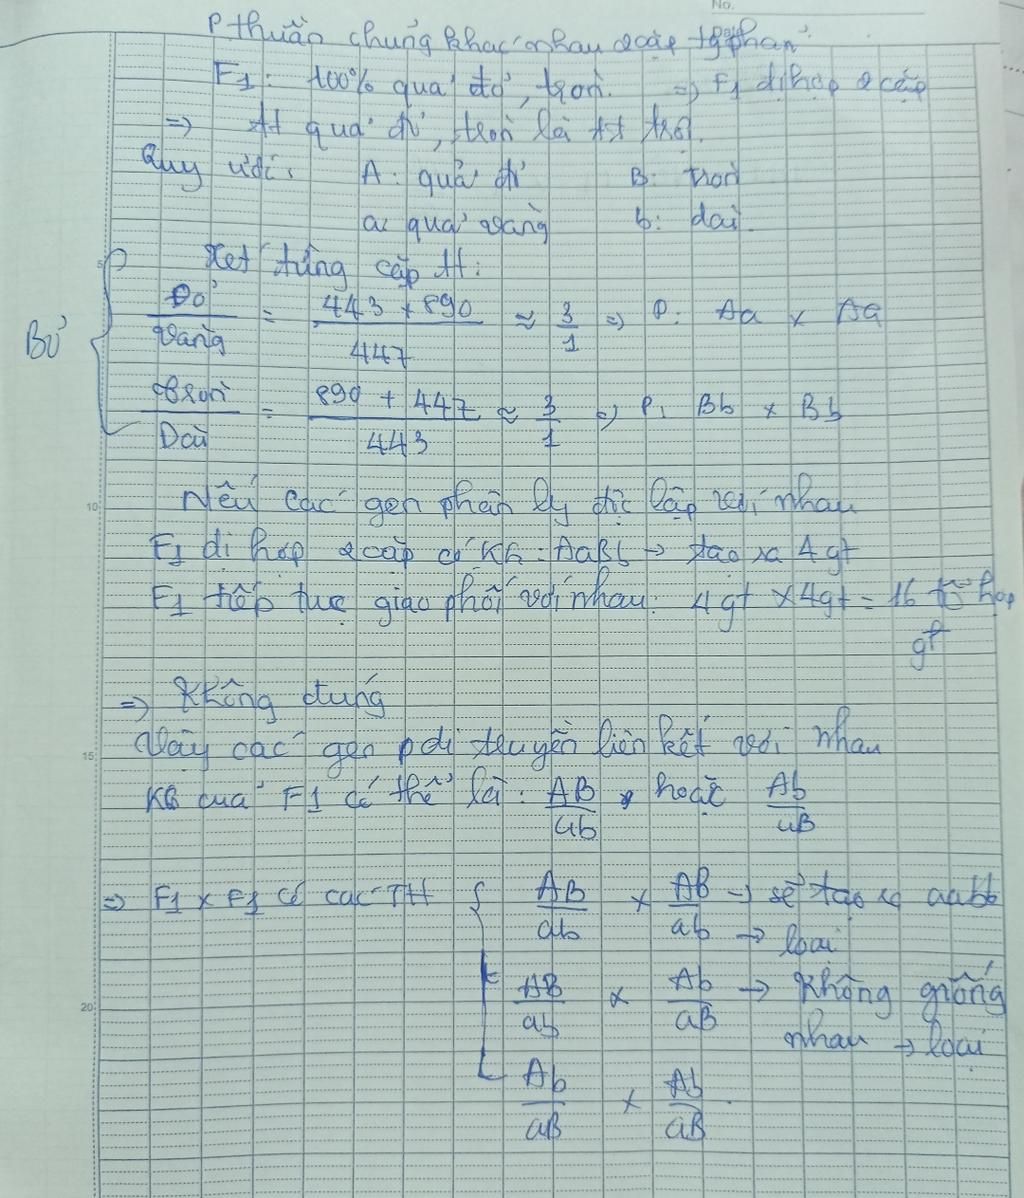 No.
P thuần chủng khác nhau 2 cặp tgphản
F1: 100% quả đỏ, tròn. => F1 dị hợp 2 cặp
=> tt quả đỏ, tròn là tt trội.
Quy ước: A: quả đỏ B: tròn
a: quả vàng b: dài.
Xét từng cặp tt:
Bỏ Đỏ/Vàng = 443 + 890/447 ≈ 3/1 => P: Aa x Aa
Tròn/Dài = 890 + 447/443 ≈ 3/1 => P: Bb x Bb
10 Nếu các gen phân ly độc lập với nhau
F1 dị hợp 2 cặp có KG: AaBb → tạo ra 4 gt
F1 tiếp tục giao phối với nhau: 4 gt x 4gt = 16 tổ hợp
gt
=> Không đúng
15 Vậy các gen di truyền liên kết với nhau
KG của F1 có thể là: AB/ab hoặc Ab/aB
=> F1 x F1 có các TH AB/ab x AB/ab → sẽ tạo ra aabb
→ loại
20 AB/ab x Ab/aB → Không giống
nhau → loại
Ab/aB x Ab/aB